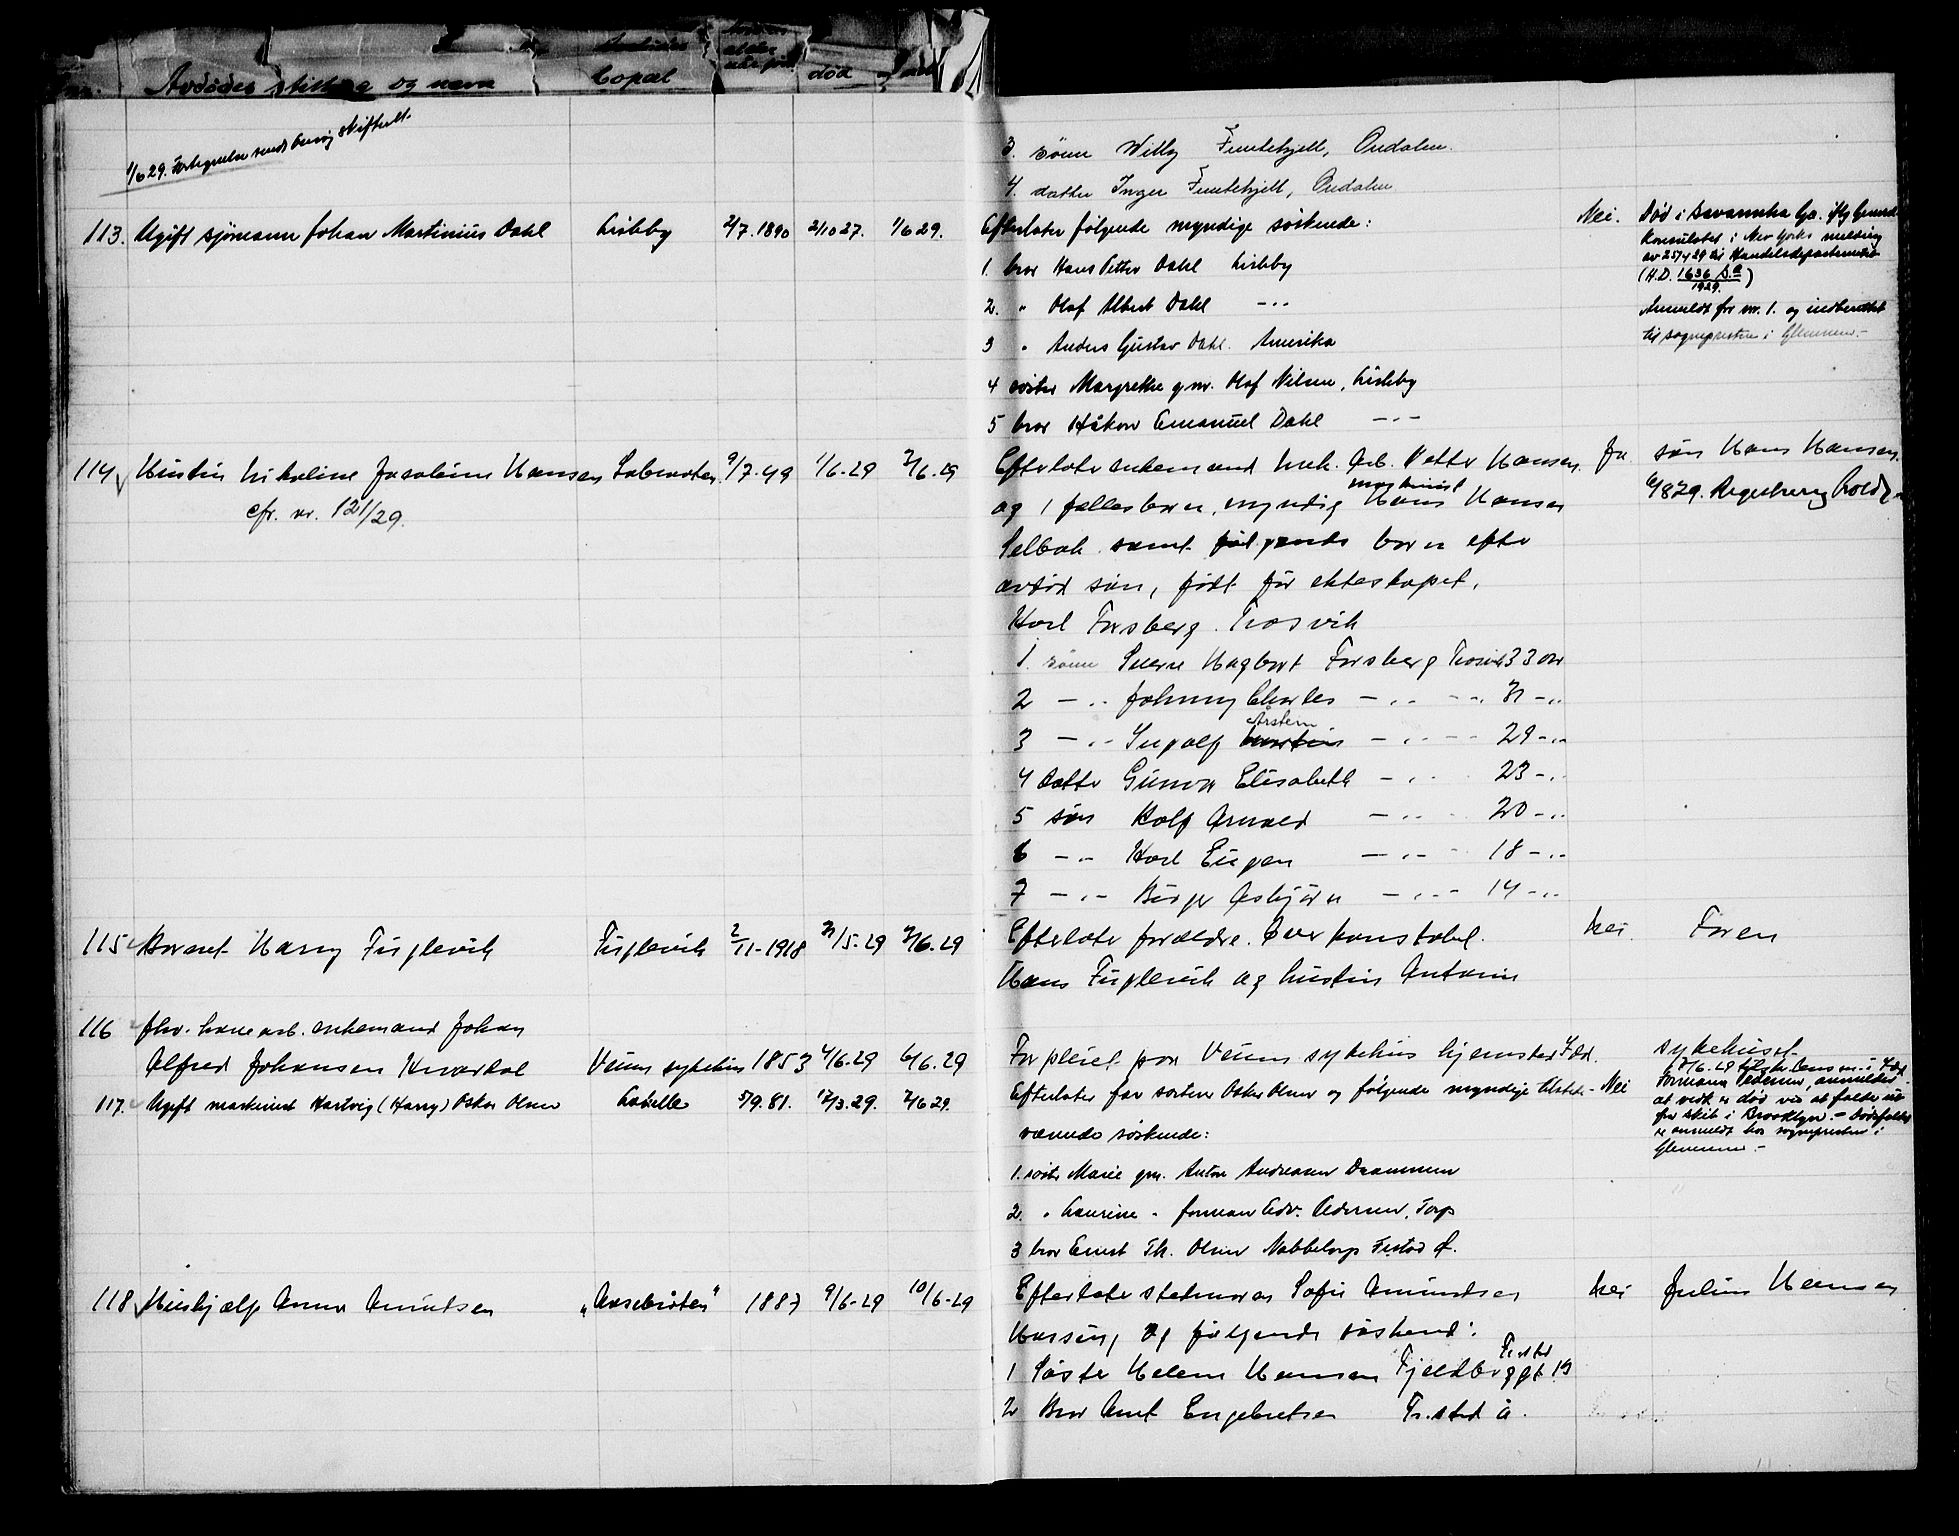 Avdødes stilling og navn
bopæl
død
1/6 29. Fortegnelse sendt skifterett.
3. sønn Willy Funtekjell, Ondalen.
4. datter Inger Funtekjell, Ondalen
113. Ugift sjømann Johan Martinius Dahl Lisleby 2/7.1890 2/10 27. 1/6 29.
Efterlater følgende myndige søskende: Nei.
1. bror Hans Petter Dahl Lisleby
2. " Olaf Albert Dahl -"-
3 " Anders Gustav Dahl. Amerika
4 søster Margrethe g.m. Olaf Nilsen, Lisleby
5 bror Håkon Emanuel Dahl -"-
Død i Savannha Ga. iflg General
konsulatet i New Yorks melding
av 25/4 29 til Handelsdepartementet
(H.D. 1636 S.a 1929.)
Anmeldt for nr. 1. og indberettet
til sognepresten i Glemmen.-
114 Hustru Nikoline Jacobine Hansen Labraaten 9/7.49 1/6.29 3/6.29
cfr. nr. 121/29.
Efterlater enkemand Petter Hansen. Ja
og 1 fællesbarn, myndig maskinist Hans Hansen
Selbak samt følgende barn efter
avdød søn, født før ekteskapet,
Karl Forsberg. Trosvik
1. sønn Sverre Hagbart Forsberg Trosvik 33 år
2 -"- Johnny Charles -"- 31 -"-
3 -"- Ingolf Arstein -"- 29 -"-
4 datter Gunvor Elisabeth -"- 23 -"-
5 søn Rolf Arnold -"- 20 -"-
6 -"- Karl Eugen -"- 18 -"-
7 -"- Birger Asbjørn -"- 14 -"-
søn Hans Hansen.
115 Barnet Harry Fuglevik Fuglevik 2/11-1918 31/5.29 3/6.29
Efterlater forældre. Overkonstabel. Nei. Faren
Hans Fuglevik og hustru Antonie
116 fhv. havearb. enkemand Johan
Alfred Johansen Kvardal Veum sykehus 1853 4/6.29 6/6.29
Forpleiet paa Veum sykehus hjemsted Idd. sykehuset
117. Ugift maskinist Hartvig (Harry) Oskar Olsen Labella 5/9.81. 17/3.29. 7/6 29.
Efterlater far Oskar Olsen og følgende myndige tilstede- Nei
værende søskende:
1. søster Marie g.m. Anton Andreassen Drammen
2. " Laurine " formann Edv. Pedersen, Torp
3 bror Ernst Th. Olsen Nabbetorp Frstad Ø.
formann Pedersen, anmeldes
at vedk. er død ved at falde ut
fra skib i Brooklyn. - Dødsfaldet
er anmeldt hos sognepresten i
Glemmen.-
118 Hushjælp Anna Amundsen "Aasebråten" 1887 9/6-29 10/6-29
Efterlater stedmoren Sofie Amundsen Nei Julius Hansen
og følgende søskend:
1 Søster Helene Hansen Fjeldbergt. 13 Fr.stad
2 Bror Anet Engebretsen Fr.stad Ø.